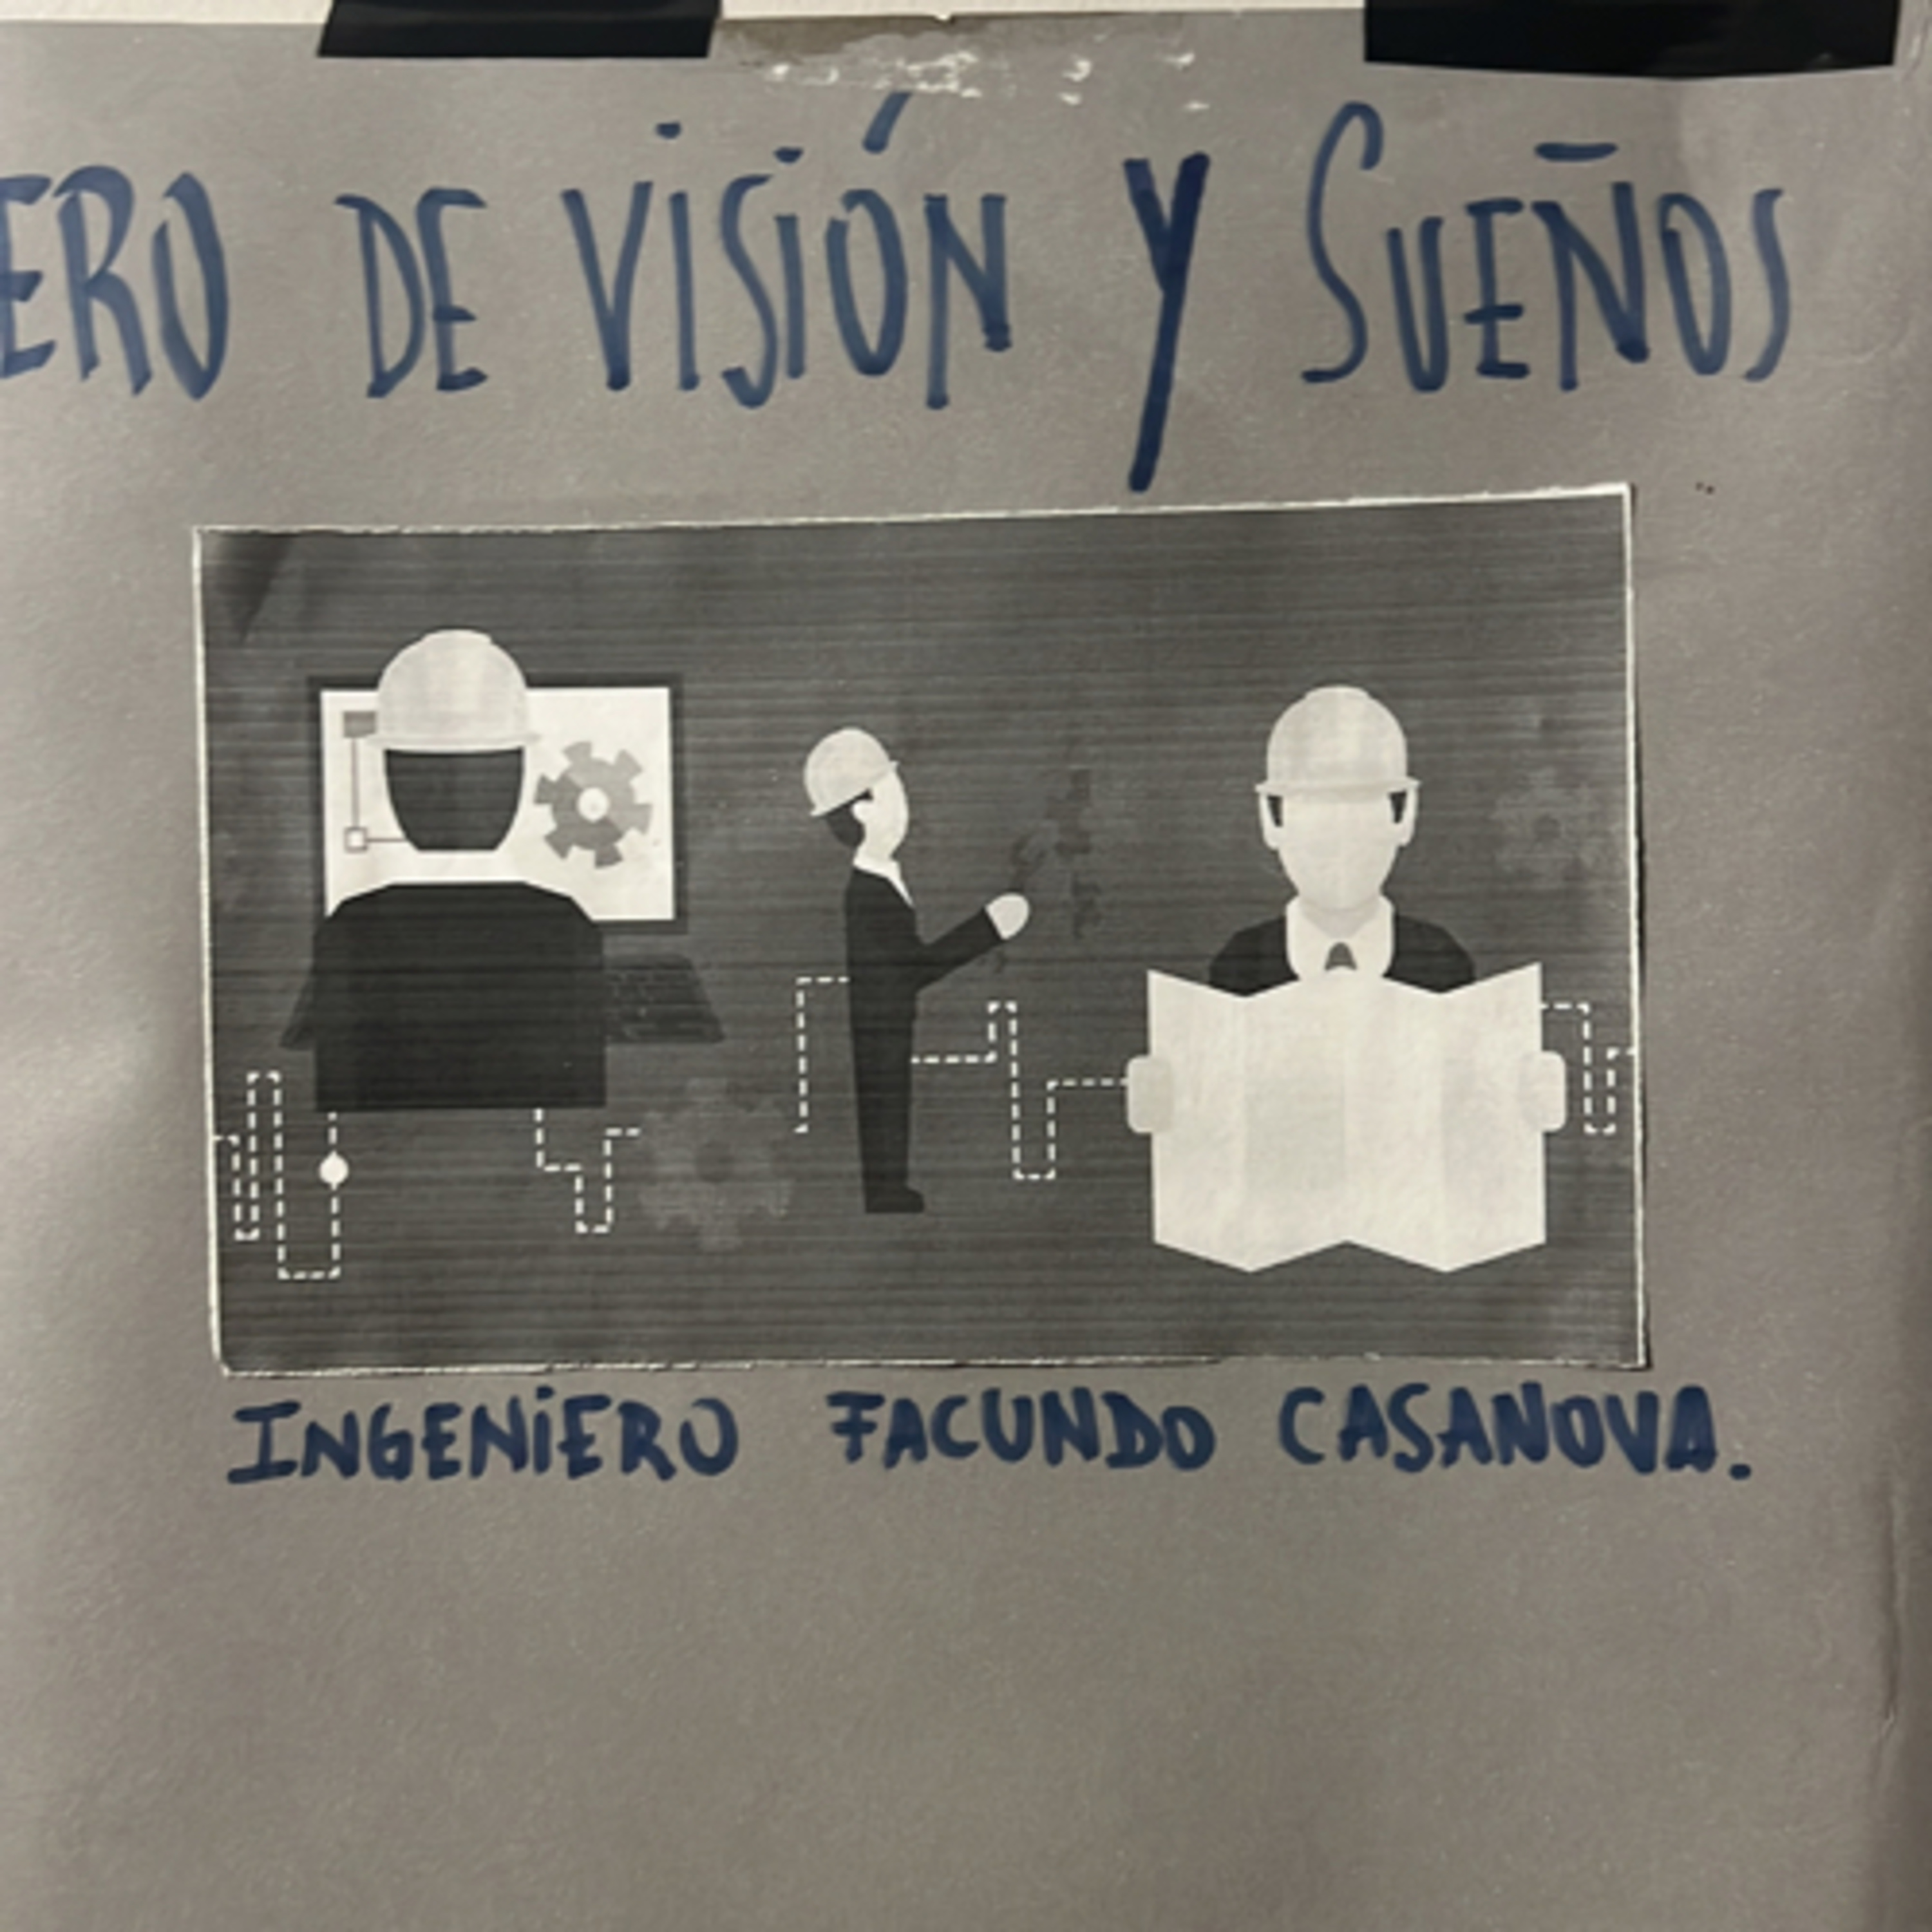 ERO DE VISIÓN Y SUEÑOS
INGENIERO FACUNDO CASANOVA.